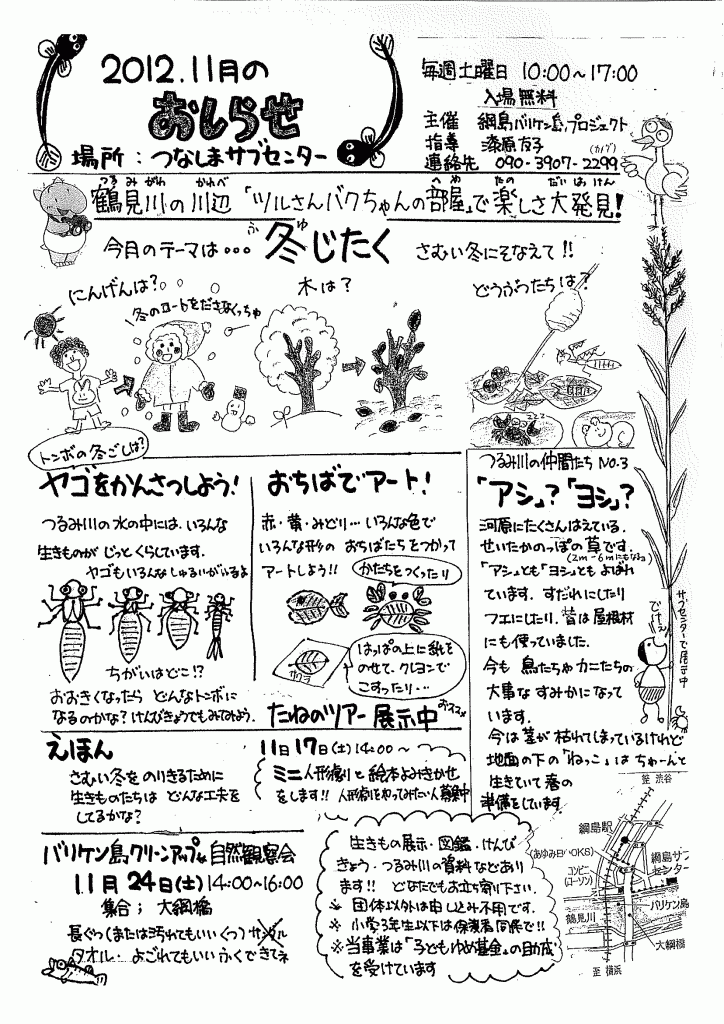 2012.11月の
おしらせ
場所：つなしまサブセンター
毎週土曜日 10:00～17:00
入場無料
主催 綱島バリケン島プロジェクト
指導 漆原友子
連絡先 090-3907-2299
鶴見川の川辺「ツルさんバクちゃんの部屋」で楽しさ大発見!
今月のテーマは… 冬じたく さむい冬にそなえて!!
にんげんは?
冬のコートをださなくっちゃ
木は?
どうぶつたちは?
トンボの冬ごしは?
ヤゴをかんさつしよう!
つるみ川の水の中には、いろんな
生きものが じっと くらしています。
ヤゴもいろんな しゅるいがいるよ
ちがいはどこ!?
おおきくなったら どんなトンボに
なるのかな? けんびきょうでもみてみよう。
おちばでアート!
赤・黄・みどり… いろんな色で
いろんな形の おちばたちをつかって
アートしよう!!
かたちをつくったり
サクラ
はっぱの上に紙を
のせて、クレヨンで
こすったり…
たねのツアー展示中
おススメ
つるみ川の仲間たち No.3
「アシ」?「ヨシ」?
河原にたくさんはえている、
せいたかのっぽの草です。
(2m～6mにもなる)
「アシ」とも「ヨシ」とも よばれ
ています。すだれにしたり
フエにしたり、昔は屋根材
にも使っていました。
今も 鳥たちやカニたちの
大事な すみかになって
います。
今は茎が枯れてしまっているけれど
地面の下の「ねっこ」は ちゃーんと
生きていて 春の
準備をしています。
サブセンターで展示中
でけぇ
えほん
さむい冬を のりきるために
生きものたちは どんな工夫を
してるかな?
11月17日(土)14:00～
ミニ人形劇りと絵本よみきかせ
をします!! 人形劇をやってみたい人募集中
バリケン島クリーンアップ&自然観察会
11月24日(土)14:00～16:00
集合； 大綱橋
長ぐつ(または汚れてもいいくつ) サンダル
タオル・よごれてもいいふくできてネ
生きもの展示・図鑑・けんび
きょう・つるみ川の資料などあり
ます!! どなたでもお立ち寄り下さい。
※ 団体以外は申し込み不用です。
※ 小学3年生以下は保護者同伴で!!
※当事業は「子どもゆめ基金」の助成
を受けています
至 渋谷
綱島駅
(あゆみ日)・OKS)
コンビニ
(ローソン)
綱島サブ
センター
バリケン島
鶴見川
大綱橋
至 横浜